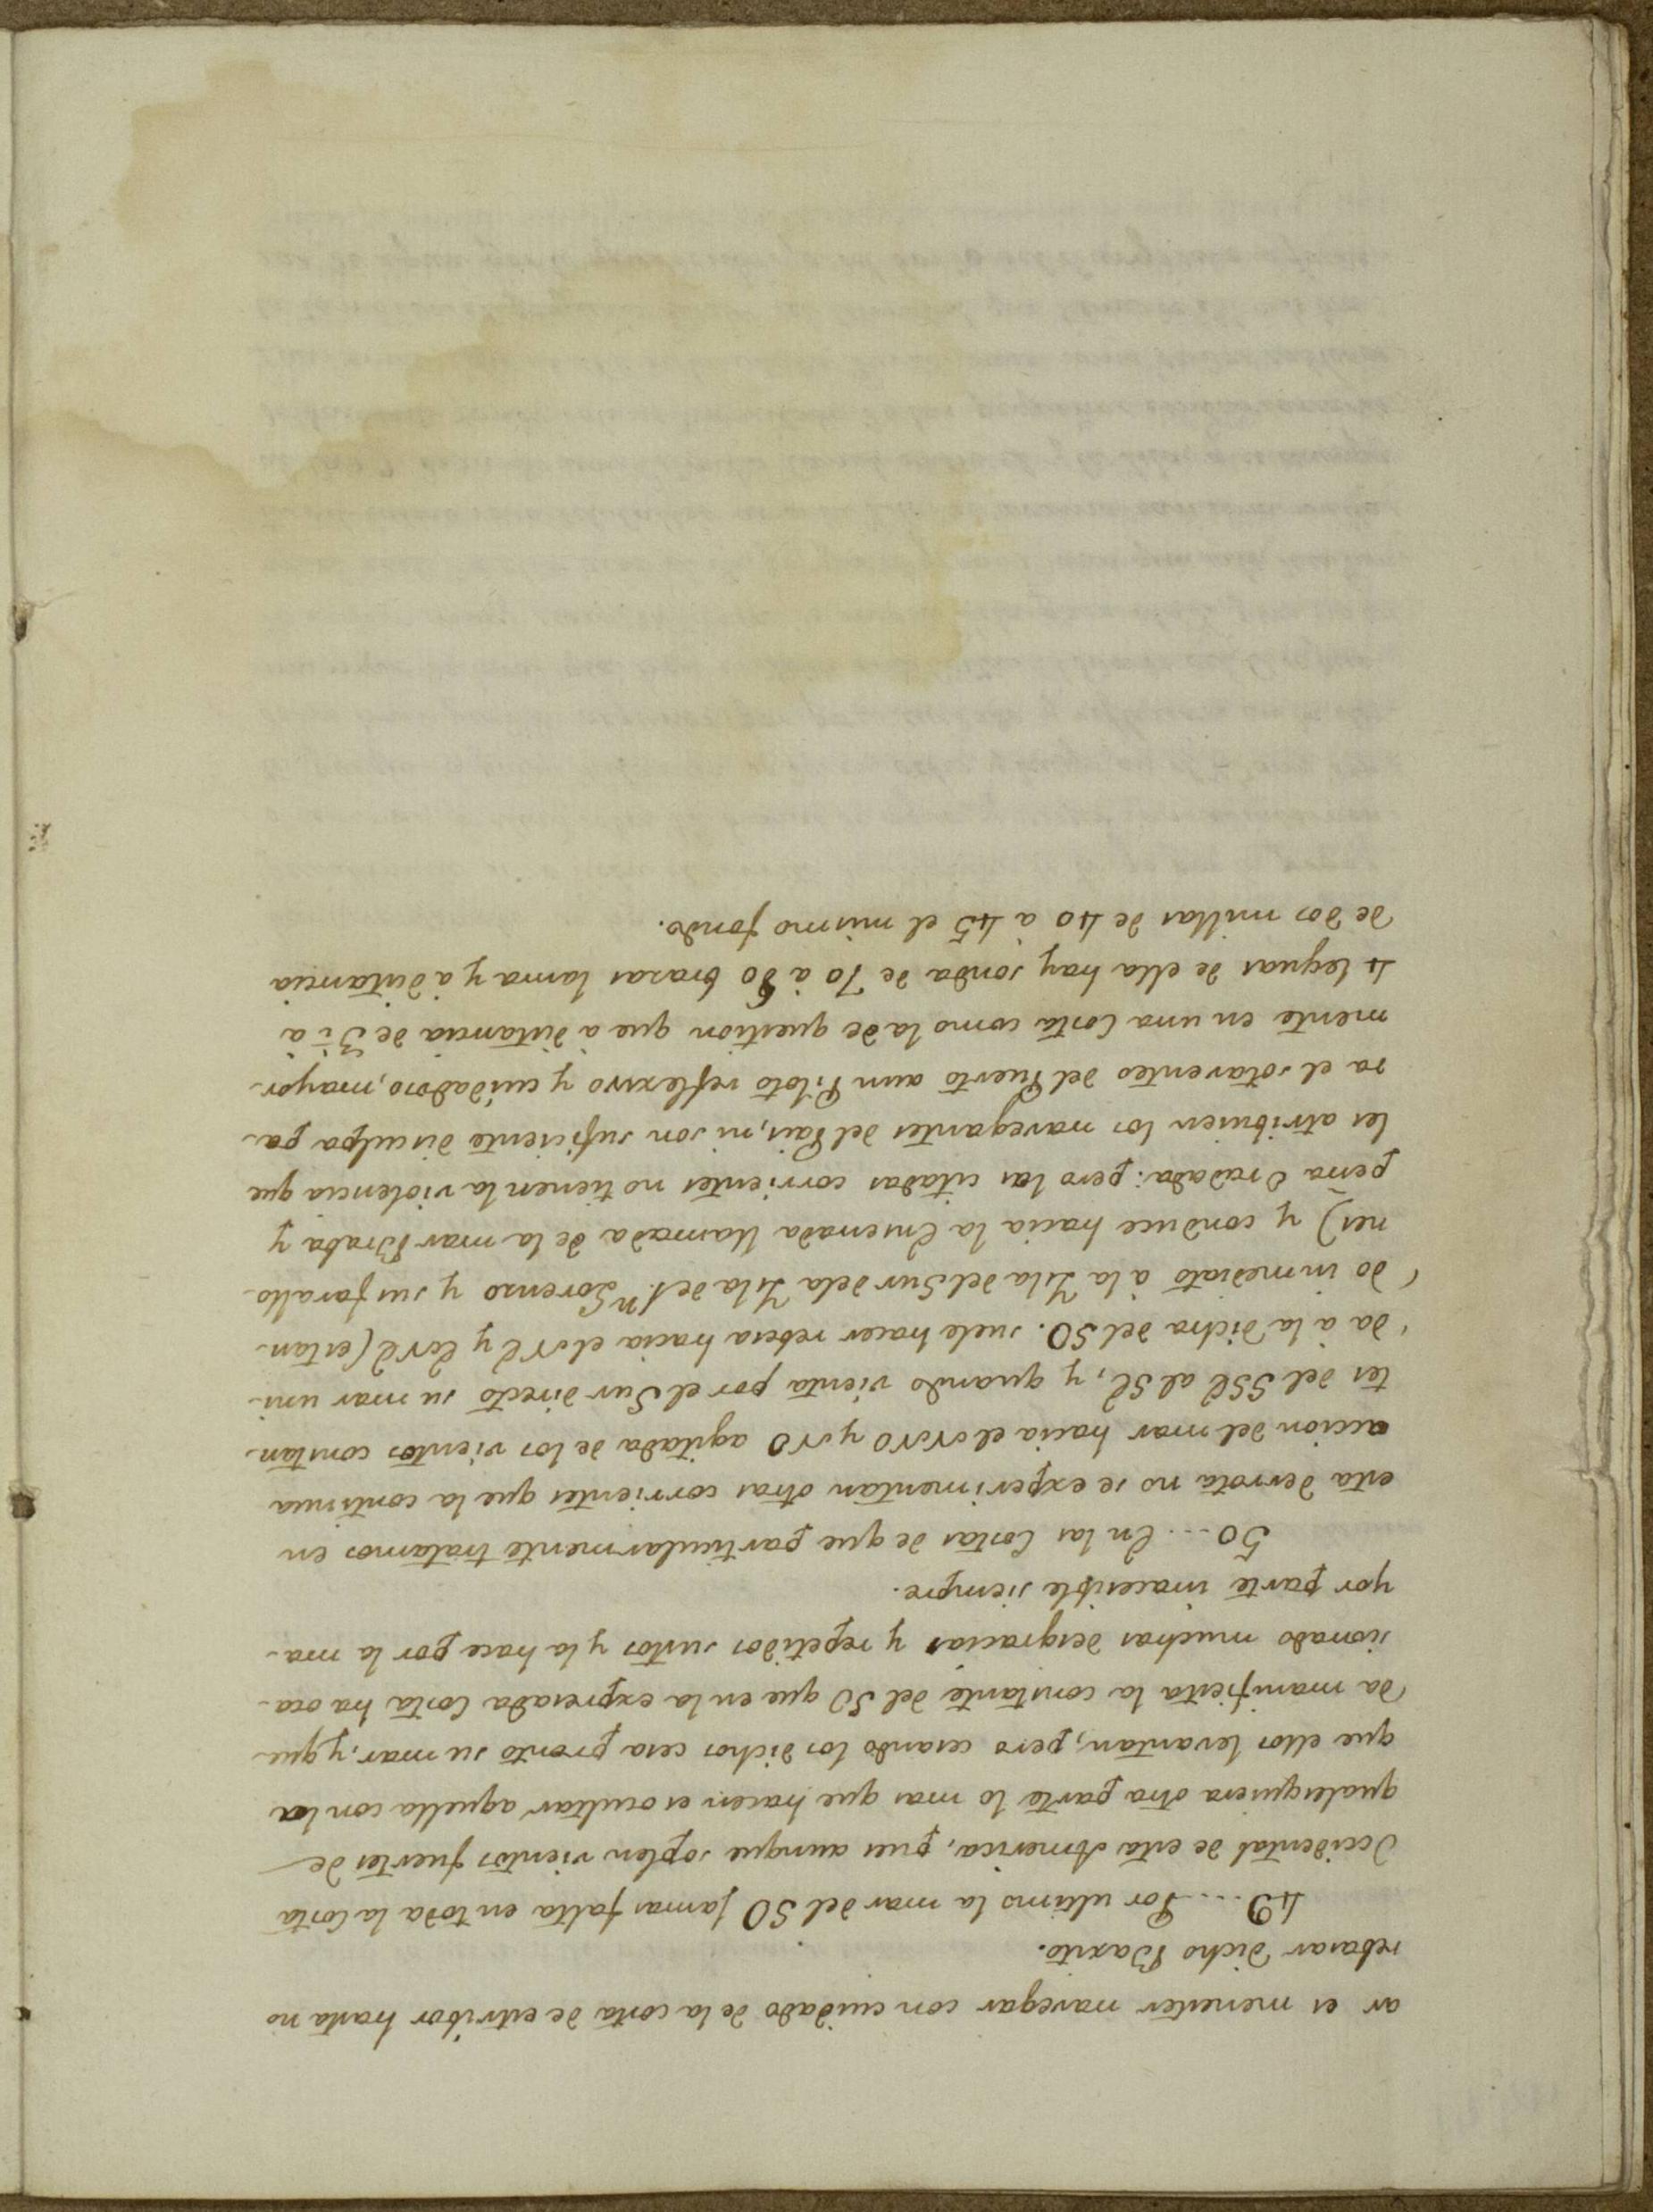 ar es menester navegar con cuidado de la costa de estribor hasta no
rebasar dicho Baxito.
49.... Por ultimo la mar del SO jamas falta en toda la Costa
Occidental de esta America, pues aunque soplen vientos fuertes de
qualesquiera otra parte lo mas que hacen es ocultar aquella con la
que ellos levantan; pero cesando los dichos cesa pronto su mar, y que-
da manifiesta la constante del SO que en la expresada Costa ha oca-
sionado muchas desgracias y repetidos sustos y la hace por la ma-
yor parte inacesible siempre.
50.... En las Costas de que particularmente tratamos en
esta derrota no se experimentan otras corrientes que la continua
accion del mar hacia el NNO y NO agitada de los vientos constan-
tes del SSE al SE, y quando vienta por el Sur directo su mar uni-
da à la dicha del SO. suele hacer rebesa hacia el NE y ENE (estan-
do inmediato à la Isla del Sur dela Ysla de Sn Lorenzo y sus farallo-
nes) y conduce hacia la Ensenada llamada de la mar Braba y
perra Oradada: pero las citadas corrientes no tienen la violencia que
les atribuien los navegantes del Pais, ni son suficiente disculpa pa-
ra el sotaventeo del Puerto aun Piloto reflexivo y cuidadoso, mayor-
mente en una Costa como la de question que à distancia de 3½ à
4 leguas de ella hay sonda de 70 à 80 brazas lama y à distancia
de dos millas de 40 a 45 el mismo fondo.